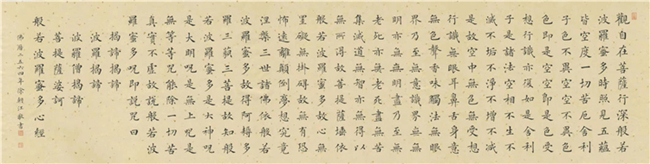 觀自在菩薩行深般若
波羅蜜多時照見五蘊
皆空度一切苦厄舍利
子色不異空空不異色
色即是空空即是色受
想行識亦復如是舍利
子是諸法空相不生不
滅不垢不淨不增不減
是故空中無色無受想
行識無眼耳鼻舌身意
無色聲香味觸法無眼
界乃至無意識界無無
明亦無無明盡乃至無
老死亦無老死盡無苦
集滅道無智亦無得以
無所得故菩提薩埵依
般若波羅蜜多故心無
罣礙無罣礙故無有恐
怖遠離顛倒夢想究竟
涅槃三世諸佛依般若
波羅蜜多故得阿耨多
羅三藐三菩提故知般
若波羅蜜多是大神咒
是大明咒是無上咒是
無等等咒能除一切苦
真實不虛故說般若波
羅蜜多咒即說咒曰
揭諦揭諦
波羅揭諦
波羅僧揭諦
菩提薩婆訶
般若波羅蜜多心經
佛曆二五六四年徐朝江敬書